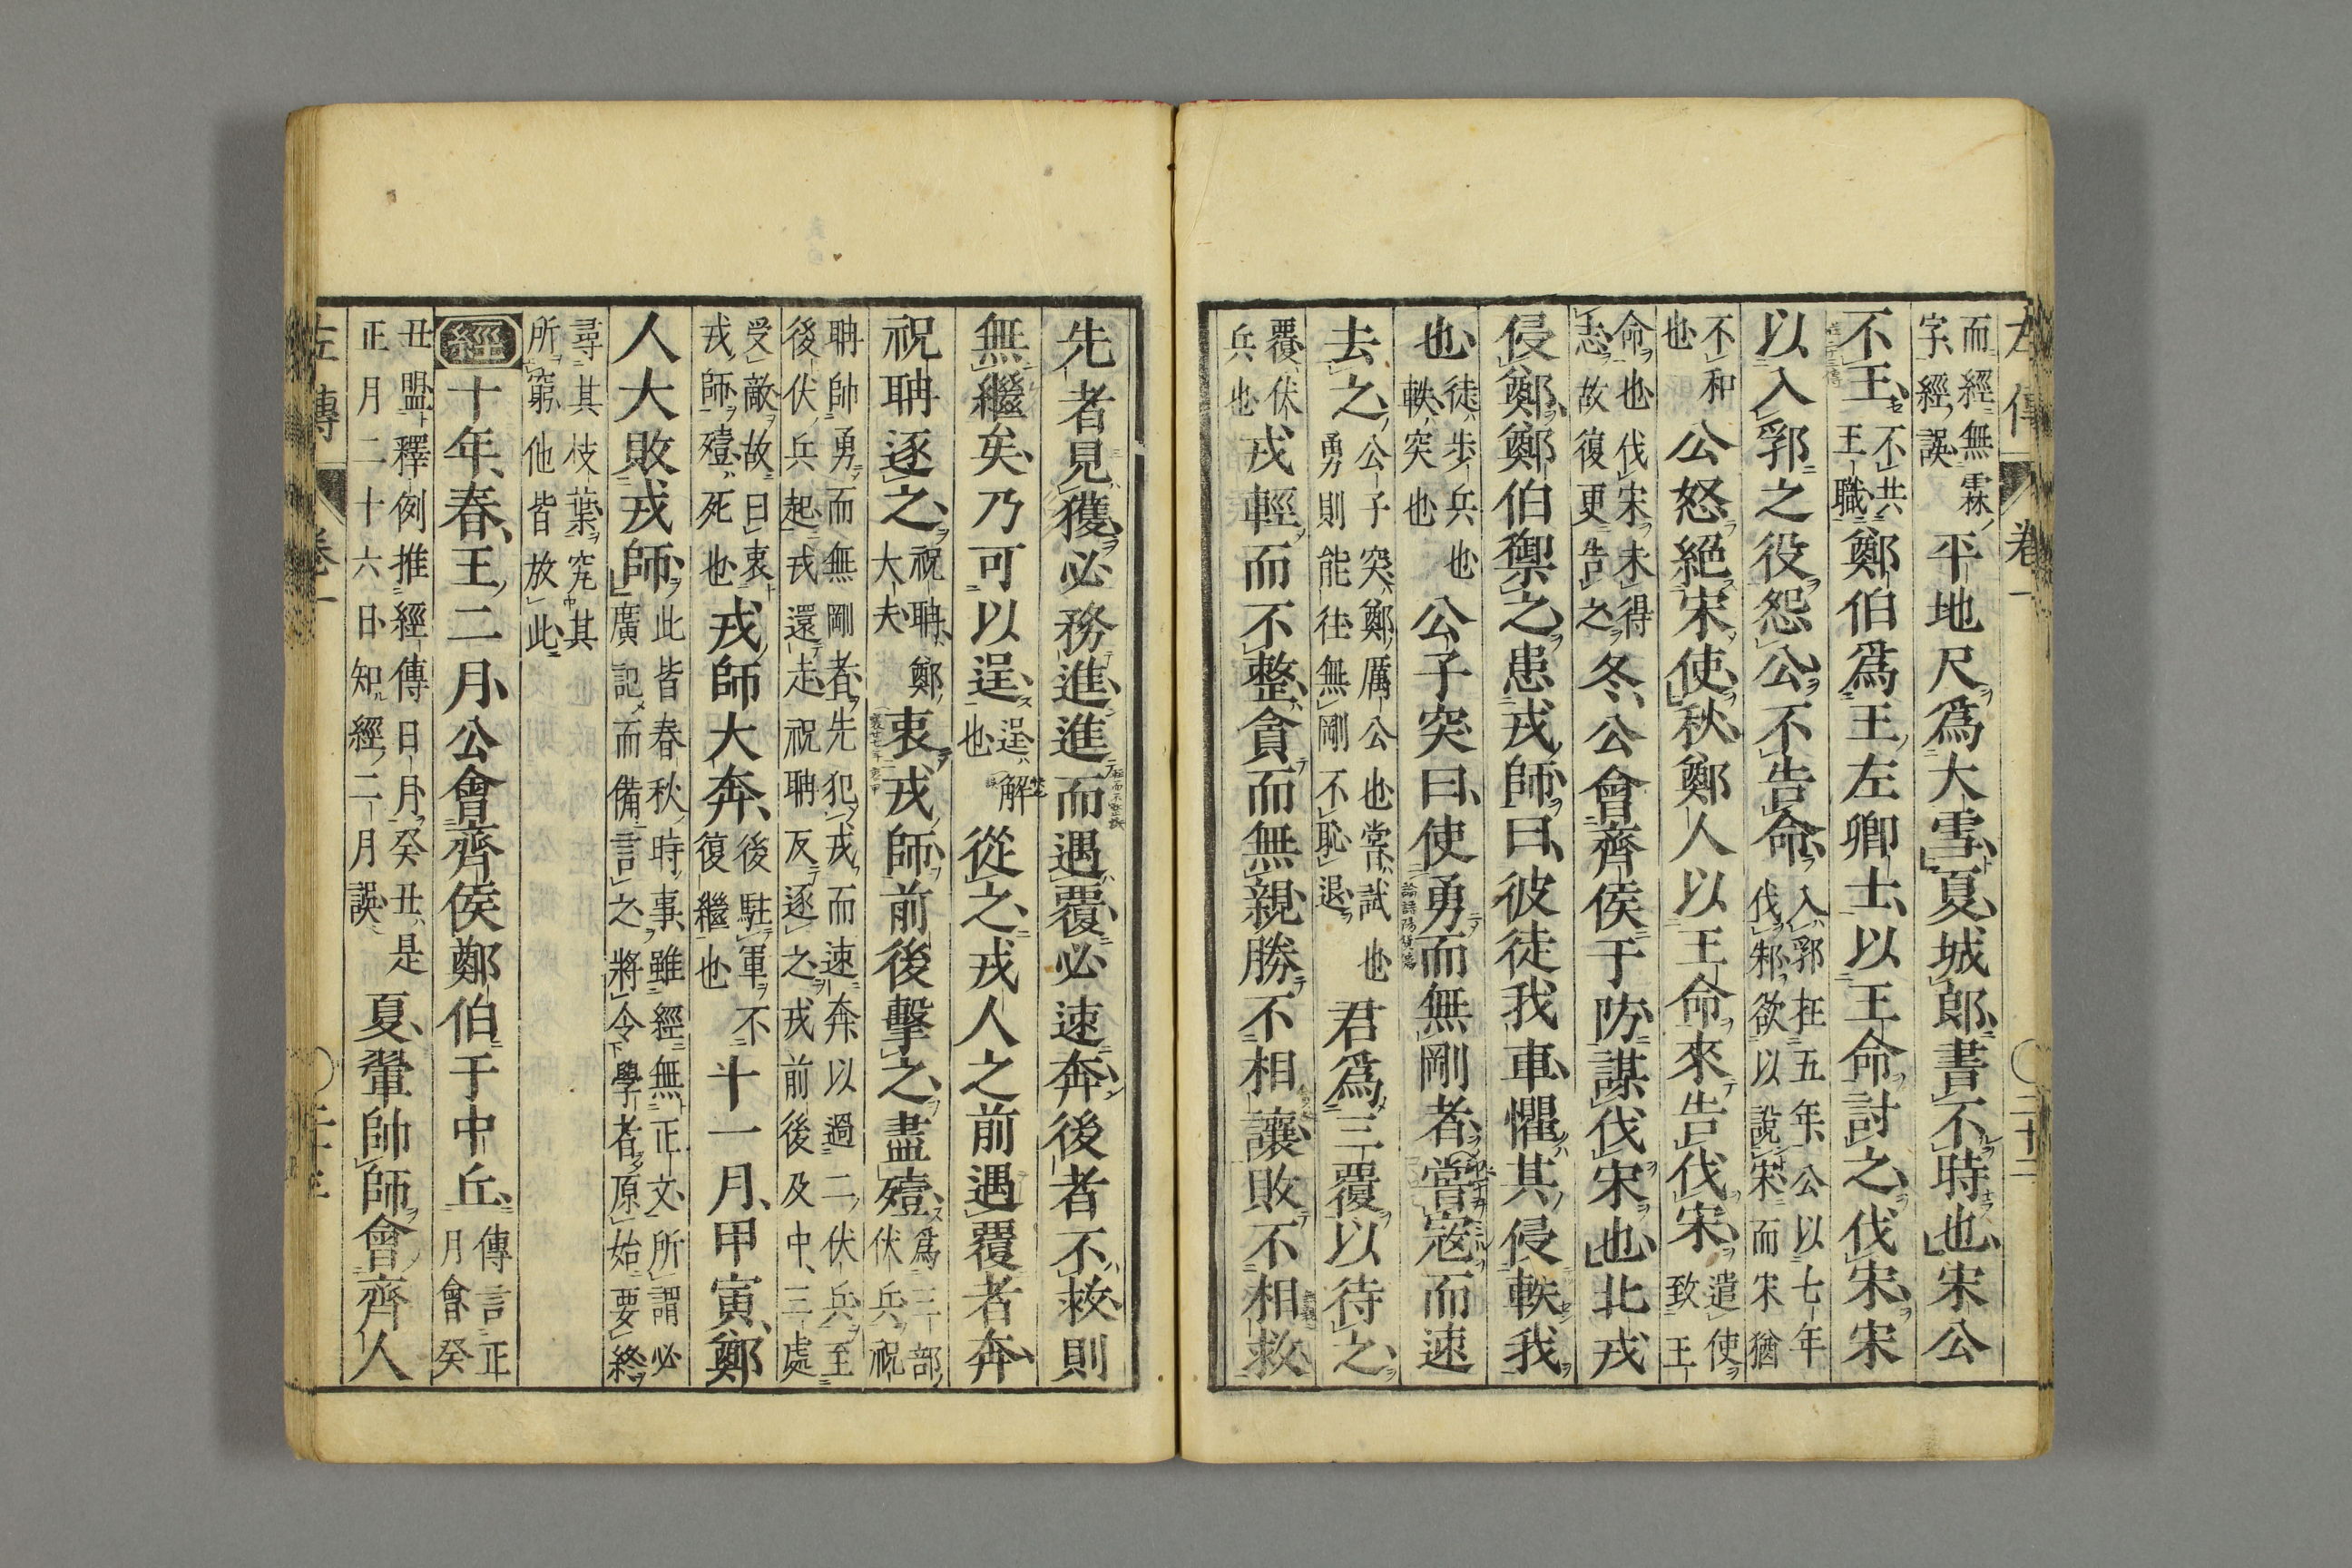 左傳 卷一 二十二
而經無霖字經誤 平地尺爲大雪夏城郎書不時也宋公
不王不共王職鄭伯爲王左卿士以王命討之伐宋宋
以入郛之役怨公不告命入郛在五年公以七年伐邾欲以說宋而宋猶
不和也 公怒絕宋使秋鄭人以王命來告伐宋遣使致王
命也伐宋未得志故復更告之冬公會齊侯于防謀伐宋也北戎
侵鄭鄭伯禦之患戎師曰彼徒我車懼其侵軼我
也徒步兵也軼突也 公子突曰使勇而無剛者嘗寇而速
去之公子突鄭厲公也嘗試也勇則能往無剛不恥退 君爲三覆以待之
覆伏兵也戎輕而不整貪而無親勝不相讓敗不相救
先者見獲必務進進而遇覆必速奔後者不救則
無繼矣乃可以逞逞解也 從之戎人之前遇覆者奔
祝聃逐之祝聃鄭大夫 衷戎師前後擊之盡殪爲三部伏兵祝
聃帥勇而無剛者先犯戎而速奔以遇二伏兵至後伏兵起戎還走祝聃反逐之戎前後及中三處
受敵故曰衷戎師殪死也戎師大奔後駐軍不復繼也 十一月甲寅鄭
人大敗戎師此皆春秋時事雖經無正文所謂必廣記而備言之將令學者原始要終
尋其枝葉究其所窮他皆放此
經十年春王二月公會齊侯鄭伯于中丘傳言正月會癸
丑盟釋例推經傳日月癸丑是正月二十六日知經二月誤 夏翬帥師會齊人
左傳 卷一